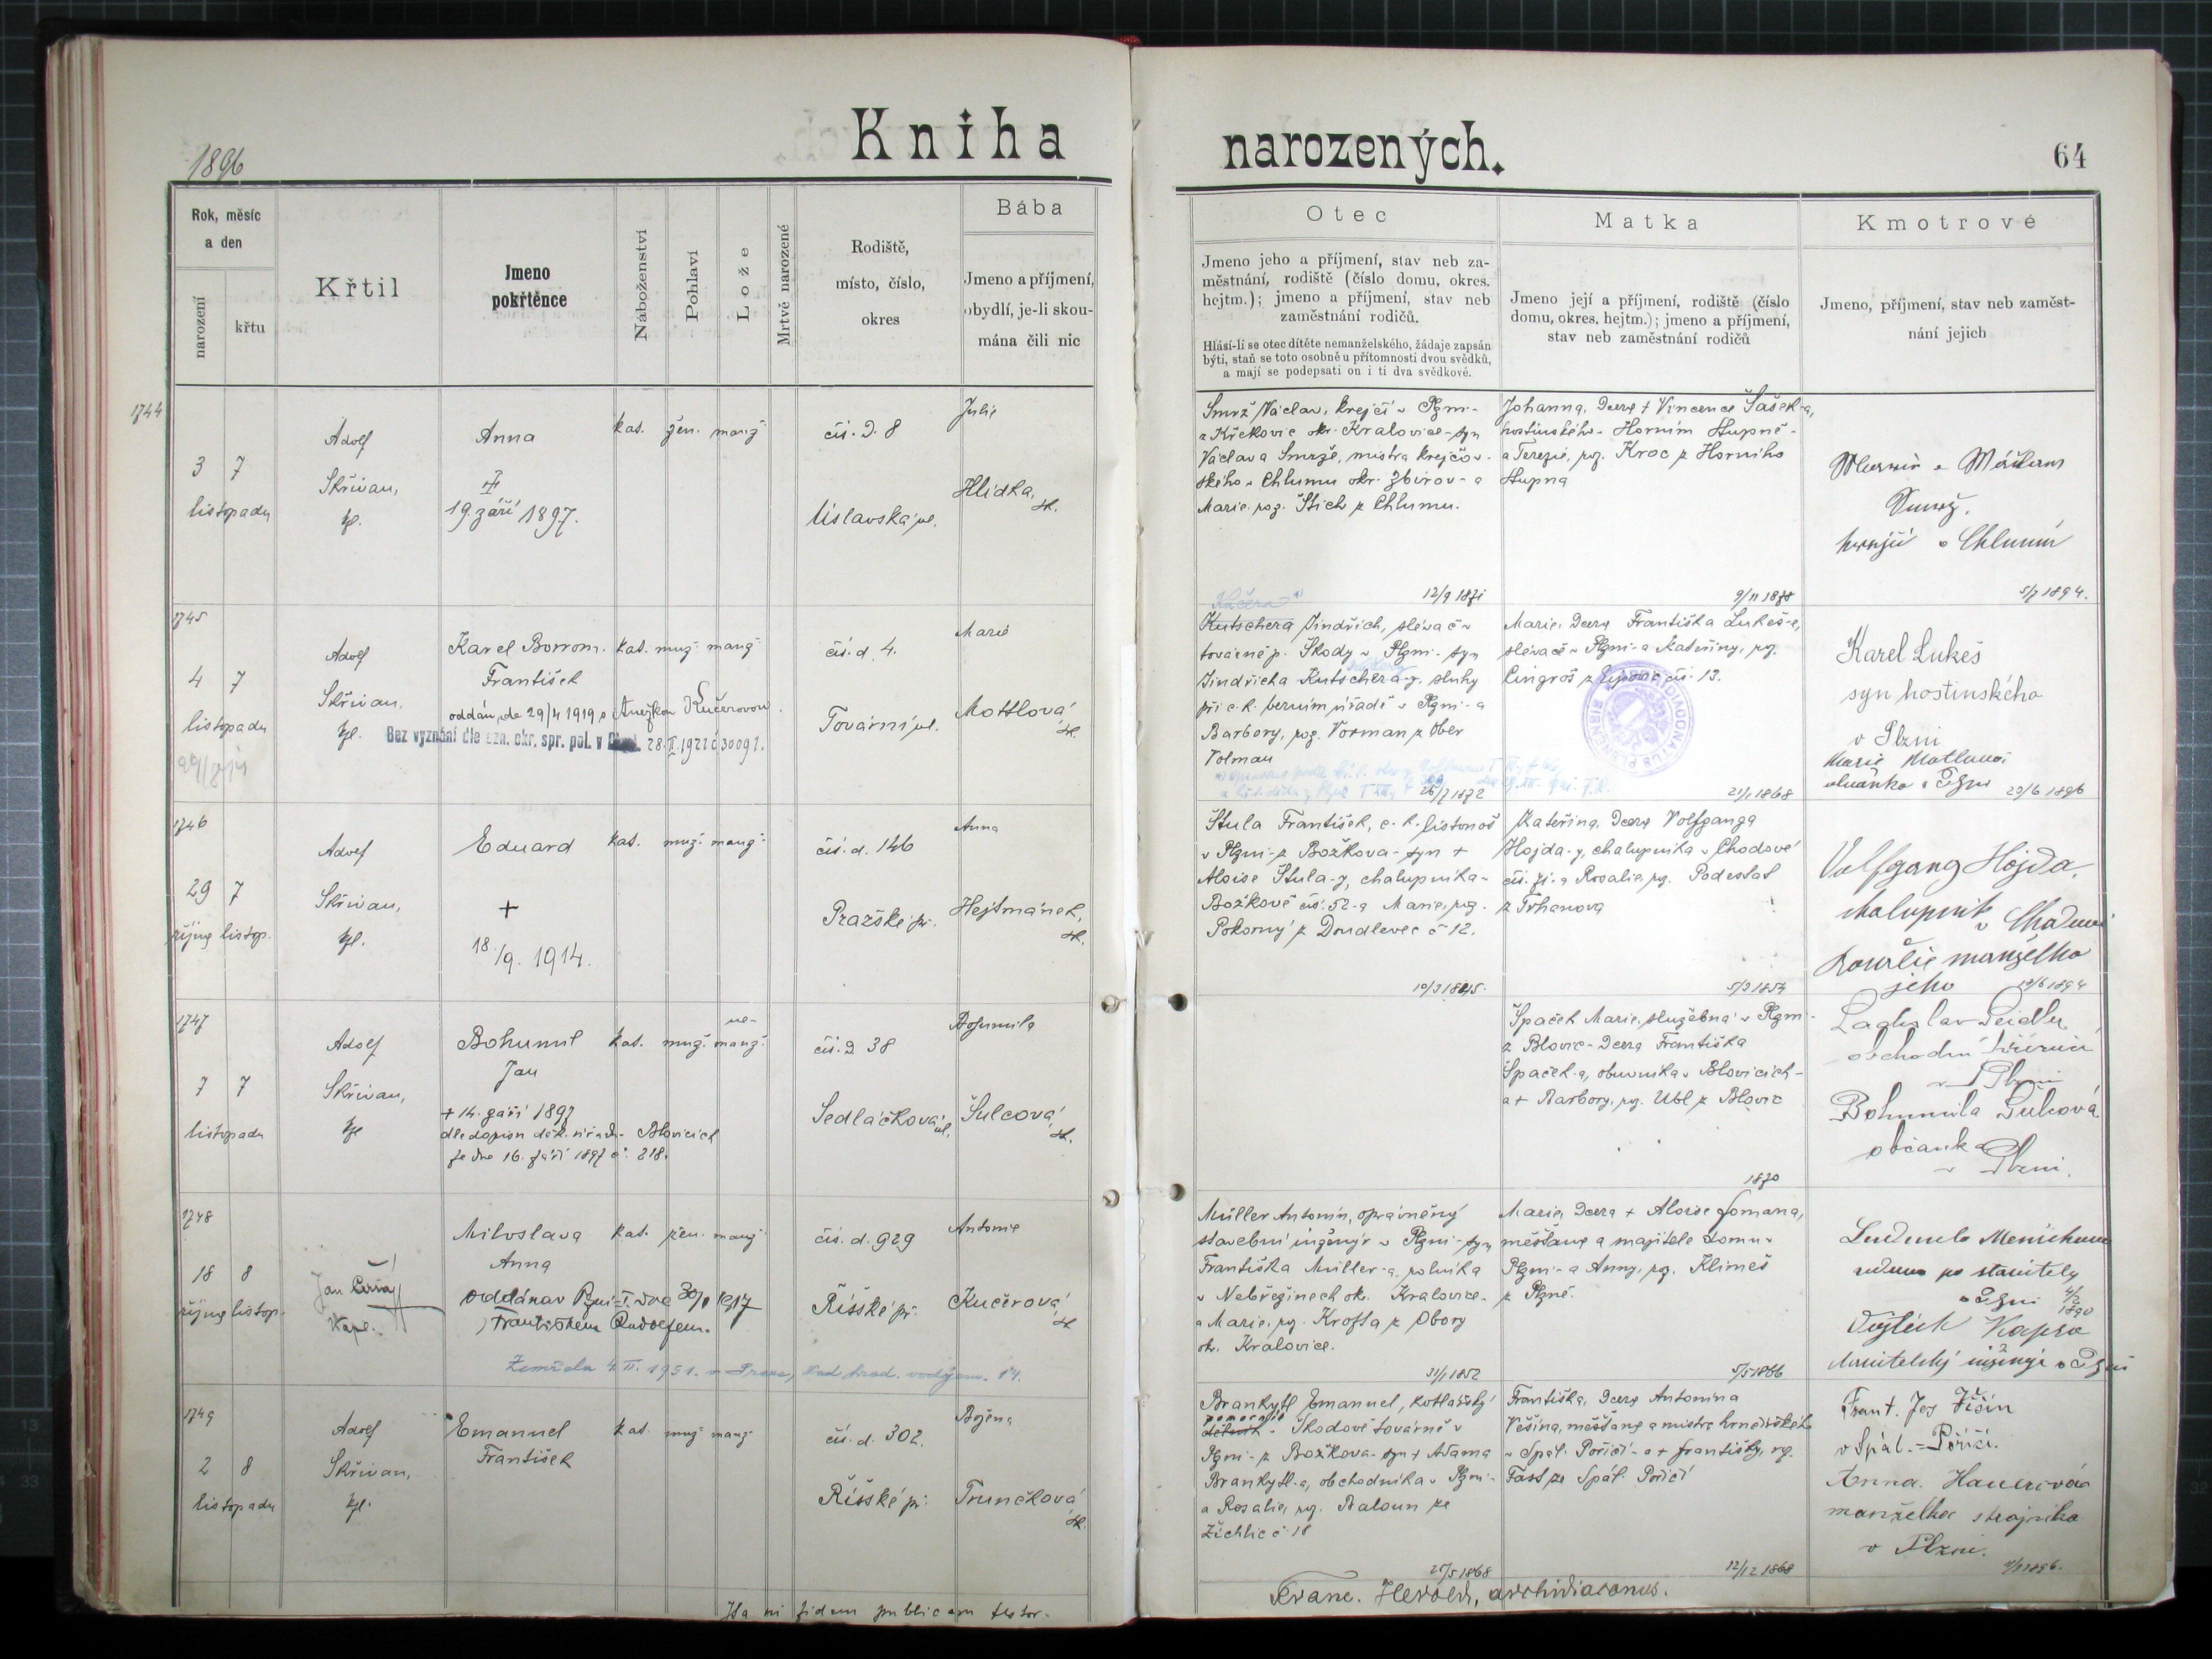 Kniha narozených.
1896
64
Rok, měsíc
a den
narození
křtu
Křtil
Jmeno
pokřtěnce
Náboženství
Pohlaví
Lože
Mrtvě narozené
Rodiště,
místo, číslo,
okres
Bába
Jmeno a příjmení,
obydlí, je-li skou-
mána čili nic
Otec
Jmeno jeho a příjmení, stav neb za-
městnání, rodiště (číslo domu, okres.
hejtm.); jmeno a příjmení, stav neb
zaměstnání rodičů.
Hlásí-li se otec dítěte nemanželského, žádaje zapsán
býti, staň se toto osobně u přítomnosti dvou svědků,
a mají se podepsati on i ti dva svědkové.
Matka
Jmeno její a příjmení, rodiště (číslo
domu, okres. hejtm.); jmeno a příjmení,
stav neb zaměstnání rodičů
Kmotrové
Jmeno, příjmení, stav neb zaměst-
nání jejich
1744
3 7
listopadu
Adolf
Skřivan,
kpl.
Anna
19. září 1897.
kat. žen. manž.
čís. d. 8
Úslavská ul.
Julie
Hlidka, zk.
Smrž Václav, krejčí v Plzni-
z Křekovic okr. Kralovice-syn
Václava Smrže, mistra krejčov-
ského v Chlumu okr. Zbirov- a
Marie roz. Štich z Chlumu.
12/9 1871
Johanna, dcera + Vincence Šašek-a,
hostinského v Horním Stupně-
a Terezie, roz. Kroc z Horního
Stupna
9/11 1878
Smrž,
krejčí v Chlumu
5/7 1894.
1745
4 7
listopadu
Adolf
Skřivan,
kpl.
Karel Borrom.
František
oddán dne 29/4 1919 s Anežkou Kučerovou.
Bez vyznání dle ozn. okr. spr. pol. v 28. II. 1921 č 30091.
kat. muž. manž.
čís. d. 4.
Tovární ul.
Marie
Mottlová, zk.
Kučera
Kutschera Jindřich, slévač v
továrně p. Škody v Plzni- syn
Jindřicha Kutschera-y, sluhy
při c. k. berním úřadě v Plzni- a
Barbory, roz. Vorman z Ober
Volmau
26/7 1872
Marie, dcera Františka Lukeš-e,
slévače v Plzni- a Kateřiny, roz.
Lingroš z Ejpovic čís. 13.
21/1 1868
Karel Lukeš
syn hostinského
v Plzni
Marie Mottlová
v Plzni 29/6 1896
1746
29 7
října listop.
Adolf
Skřivan,
kpl.
Eduard
+
18/9. 1914.
kat. muž. manž.
čís. d. 146
Pražské př.
Anna
Hejtmánek, zk.
Štula František, c. k. listonoš
v Plzni- z Božkova- syn +
Aloise Štula-y, chalupníka v
Božkově čís. 52- a Marie, roz.
Pokorný z Doudlevec č 12.
Kateřina, dcera Volfganga
Hojda-y, chalupníka v Chodové
čís. 71- a Rosalie, roz. Podestat
z Trhanova
5/3 1854
Volfgang Hojda,
chalupník v Chodové
Rosalie manželka
jeho 10/6 1894
1747
7 7
listopadu
Adolf
Skřivan,
kpl
Bohumil
Jan
+ 14. září 1897
dle dopisu děk. úřadu v Blovicích
ze dne 16. září 1897 č. 218.
kat. muž. ne-
manž.
čís. d 38
Sedláčkova ul.
Bohumila
Šulcová, zk.
Špaček Marie, služebná v Plzni-
z Blovic- dcera Františka
Špaček-a, obuvníka v Blovicích-
a + Barbory, roz. Übl z Blovic
1870
Ladislav Seidler
obchodní
v Plzni
Bohumila Šulcová
občanka
v Plzni.
1748
18 8
října listop.
Jan Černý
kapl.
Miloslava
Anna
oddána v Plzni-I. dne 30/1 1917
s Františkem Rudolfem.
Zemřela 4. II. 1951. v Praze, Nad hrad. vodojem. 14.
kat. žen. manž.
čís. d. 929
Říšské př.
Antonie
Kučerová, zk
Müller Antonín, oprávněný
stavební inženýr v Plzni- syn
Františka Müller-a, rolníka
v Nebřezinech ok. Kralovice-
a Marie, roz. Krofta z Obory
ok. Kralovice.
31/1 1852
Marie, dcera + Aloise Lomana,
měšťana a majitele domu v
Plzni- a Anny, roz. Klimeš
z Plzně.
5/5 1866
Ludmila Menichova
vdova po staviteli
v Plzni
Vojtěch Kapsa
stavitelský inženýr v Plzni
1749
2 8
listopadu
Adolf
Skřivan,
kpl.
Emanuel
František
kat. muž. manž.
čís. d. 302.
Říšské př.
Božena
Trunčková, zk.
Brankytl Emanuel, kotlářský
pomocník
dělník v Škodově továrně v
Plzni- z Božkova- syn + Adama
Brankytl-a, obchodníka v Plzni-
a Rosalie, roz. Baloun ze
Žichlic č 18
25/5 1868
Františka, dcera Antonína
Vešína, měšťana a mistra hrnčířského
v Spál. Poříčí- a + Františky, roz.
Fast ze Spál. Poříčí
12/12 1868
Frant. Jos Višín
v Spál.-Poříčí.
Anna Hauerová
manželka strojníka
v Plzni.
Ita in fidem publicam testor. Franc. Herold, archidiaconus.